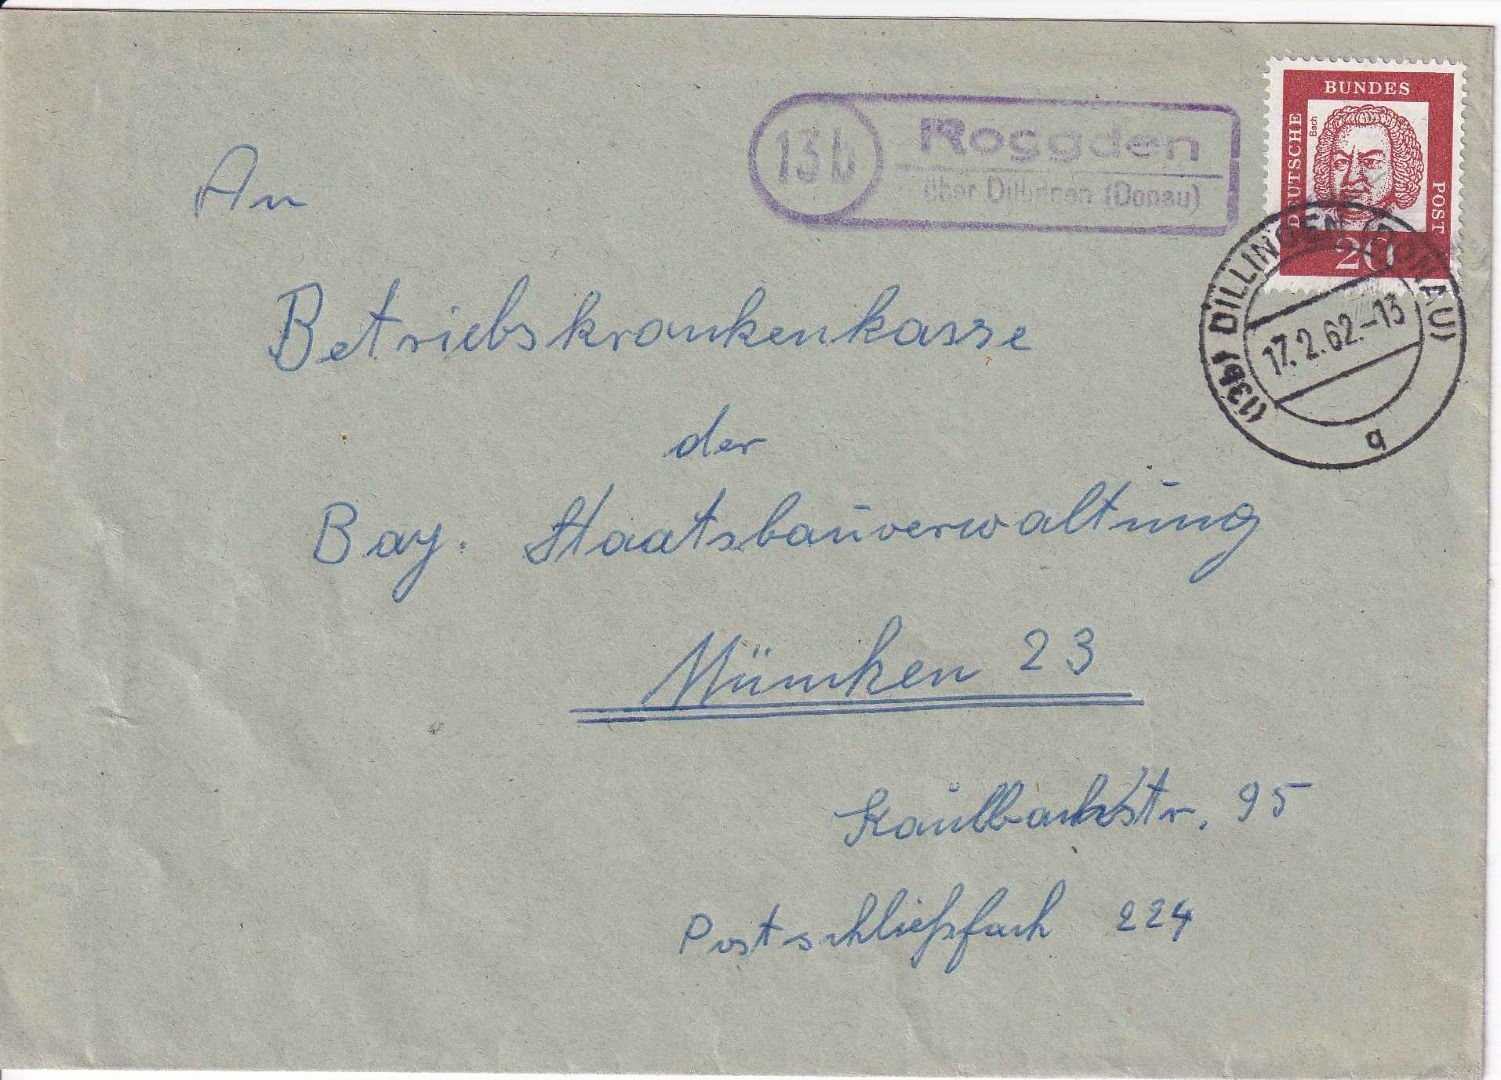 13b
Rosgden
über Dillingen (Donau)
BUNDES
DEUTSCHE
POST
Bach
20
(13b) DILLINGEN (DONAU)
17.2.62.-13
b
An
Betriebskrankenkasse
der
Bay. Staatsbauverwaltung
München 23
Kaulbachstr. 95
Postschließfach 224